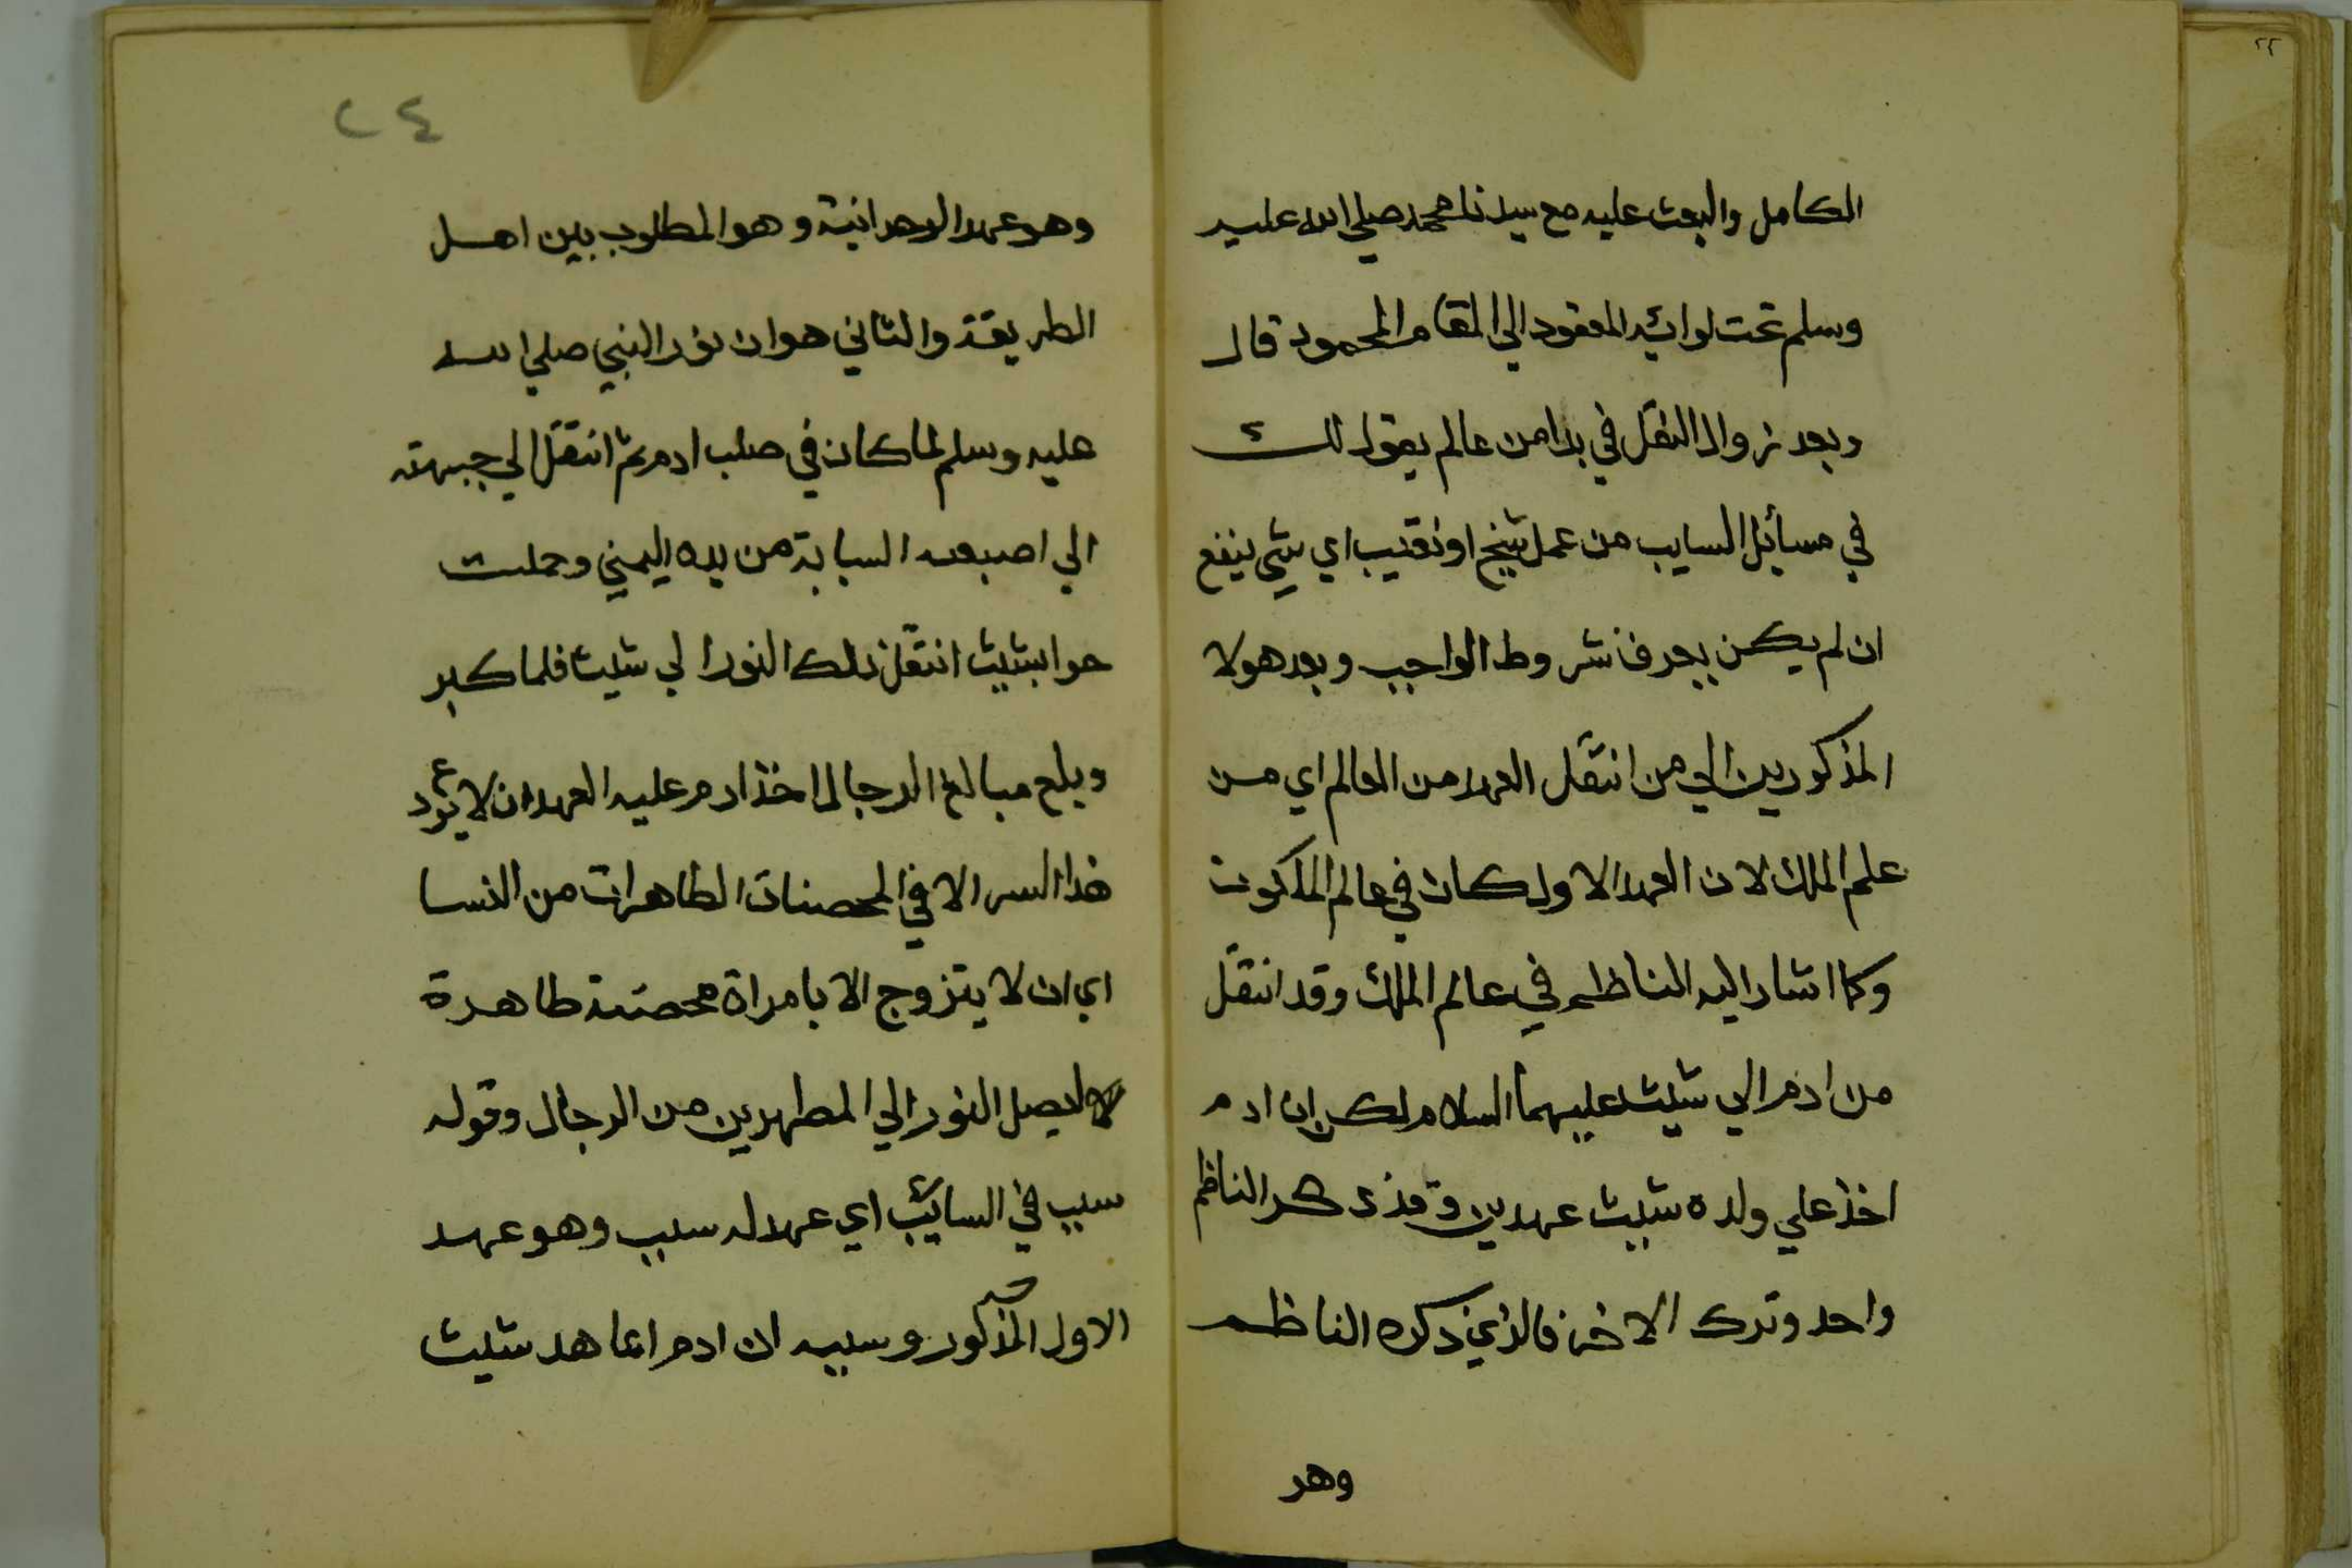 ٢٢
الكامل والبعث عليه مع سيدنا محمد صلي الله عليه
وسلم تحت لوائيه المعقود الي المقام المحمود قال
وبعد نزوال النقل في بدا من عالم يعول لك
في مسأيل السايب من عمل شيخ او نقيب اي شي ينفع
ان لم يكن يعرف شروط الواجب وبعد هولا
المذكورين الي من انتقل العهد من العالم اي من
علم الملك لان العهد الاول كان في عالم الملكوت
وكما اشار اليه الناظم في عالم الملك وقد انتقل
من ادم الي شيث عليهما السلام لكن ان ادم
اخذ علي ولده شيث عهدين وقد ذكر الناظم
واحد وترك الاخر فالذي ذكره الناظم
وهو
٢٤
وهو عهد الوهدانية وهو المطلوب بين اهل
الطريقة والثاني هو ان نور النبي صلي الله
عليه وسلم لما كان في صلب ادم ثم انتقل الي جبهته
الي اصبعه السبابة من يده اليمني وحملت
حوا بشيث انتقل ذلك النور الي شيث فلما كبر
وبلع مبالغ الرجال اخذ ادم عليه العهد ان لا يودع
هذا السر الا في المحصنات الطاهرات من النسا
اي ان لا يتزوج الا بامراة محصنة طاهرة
لاجل يصل النور الي المطهرين من الرجال وقوله
سبب في السائب اي عهد له سبب وهو عهد
الاول المذكور وسببه ان ادم لما عاهد شيث